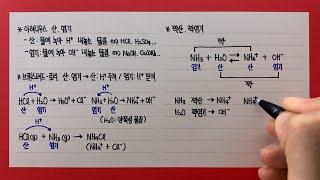 * 아레니우스 산, 염기
- 산: 물에 녹아 H⁺ 내놓는 물질 ex) HCl, H₂SO₄ ...
- 염기: 물에 녹아 OH⁻ 내놓는 물질 ex) NaOH, Ca(OH)₂ ...
* 브뢴스테드-로리 산, 염기 → 산: H⁺ 주개 / 염기: H⁺ 받개
H⁺
HCl + H₂O → H₃O⁺ + Cl⁻
산 염기
H⁺
NH₃ + H₂O → NH₄⁺ + OH⁻
염기 산
(H₂O: 양쪽성 물질)
H⁺
HCl(g) + NH₃(g) → NH₄Cl
산 염기
(NH₄⁺ + Cl⁻)
* 짝산, 짝염기
짝
NH₃ + H₂O ⇌ NH₄⁺ + OH⁻
염기 산 산 염기
짝
NH₃ 짝산 → NH₄⁺ NH₄⁺
H₂O 짝염기 → OH⁻